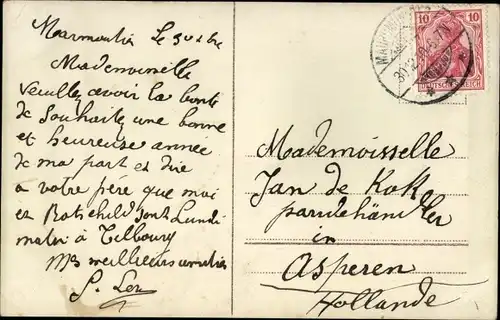 Marmoutier le 30 Xbre
Mademoiselle
Veuillez avoir la bonté
de Souhaiter une bonne
et heureuse année
de ma part et dire
a votre père que moi
et Rotschild sont Lundi
matin à Tilbourg
Mes meilleurs amitiés
S. Levy
Mademoisselle
Jan de Kok
pardehändler
in
Asperen
Hollande
10 10
DEUTSCHES REICH